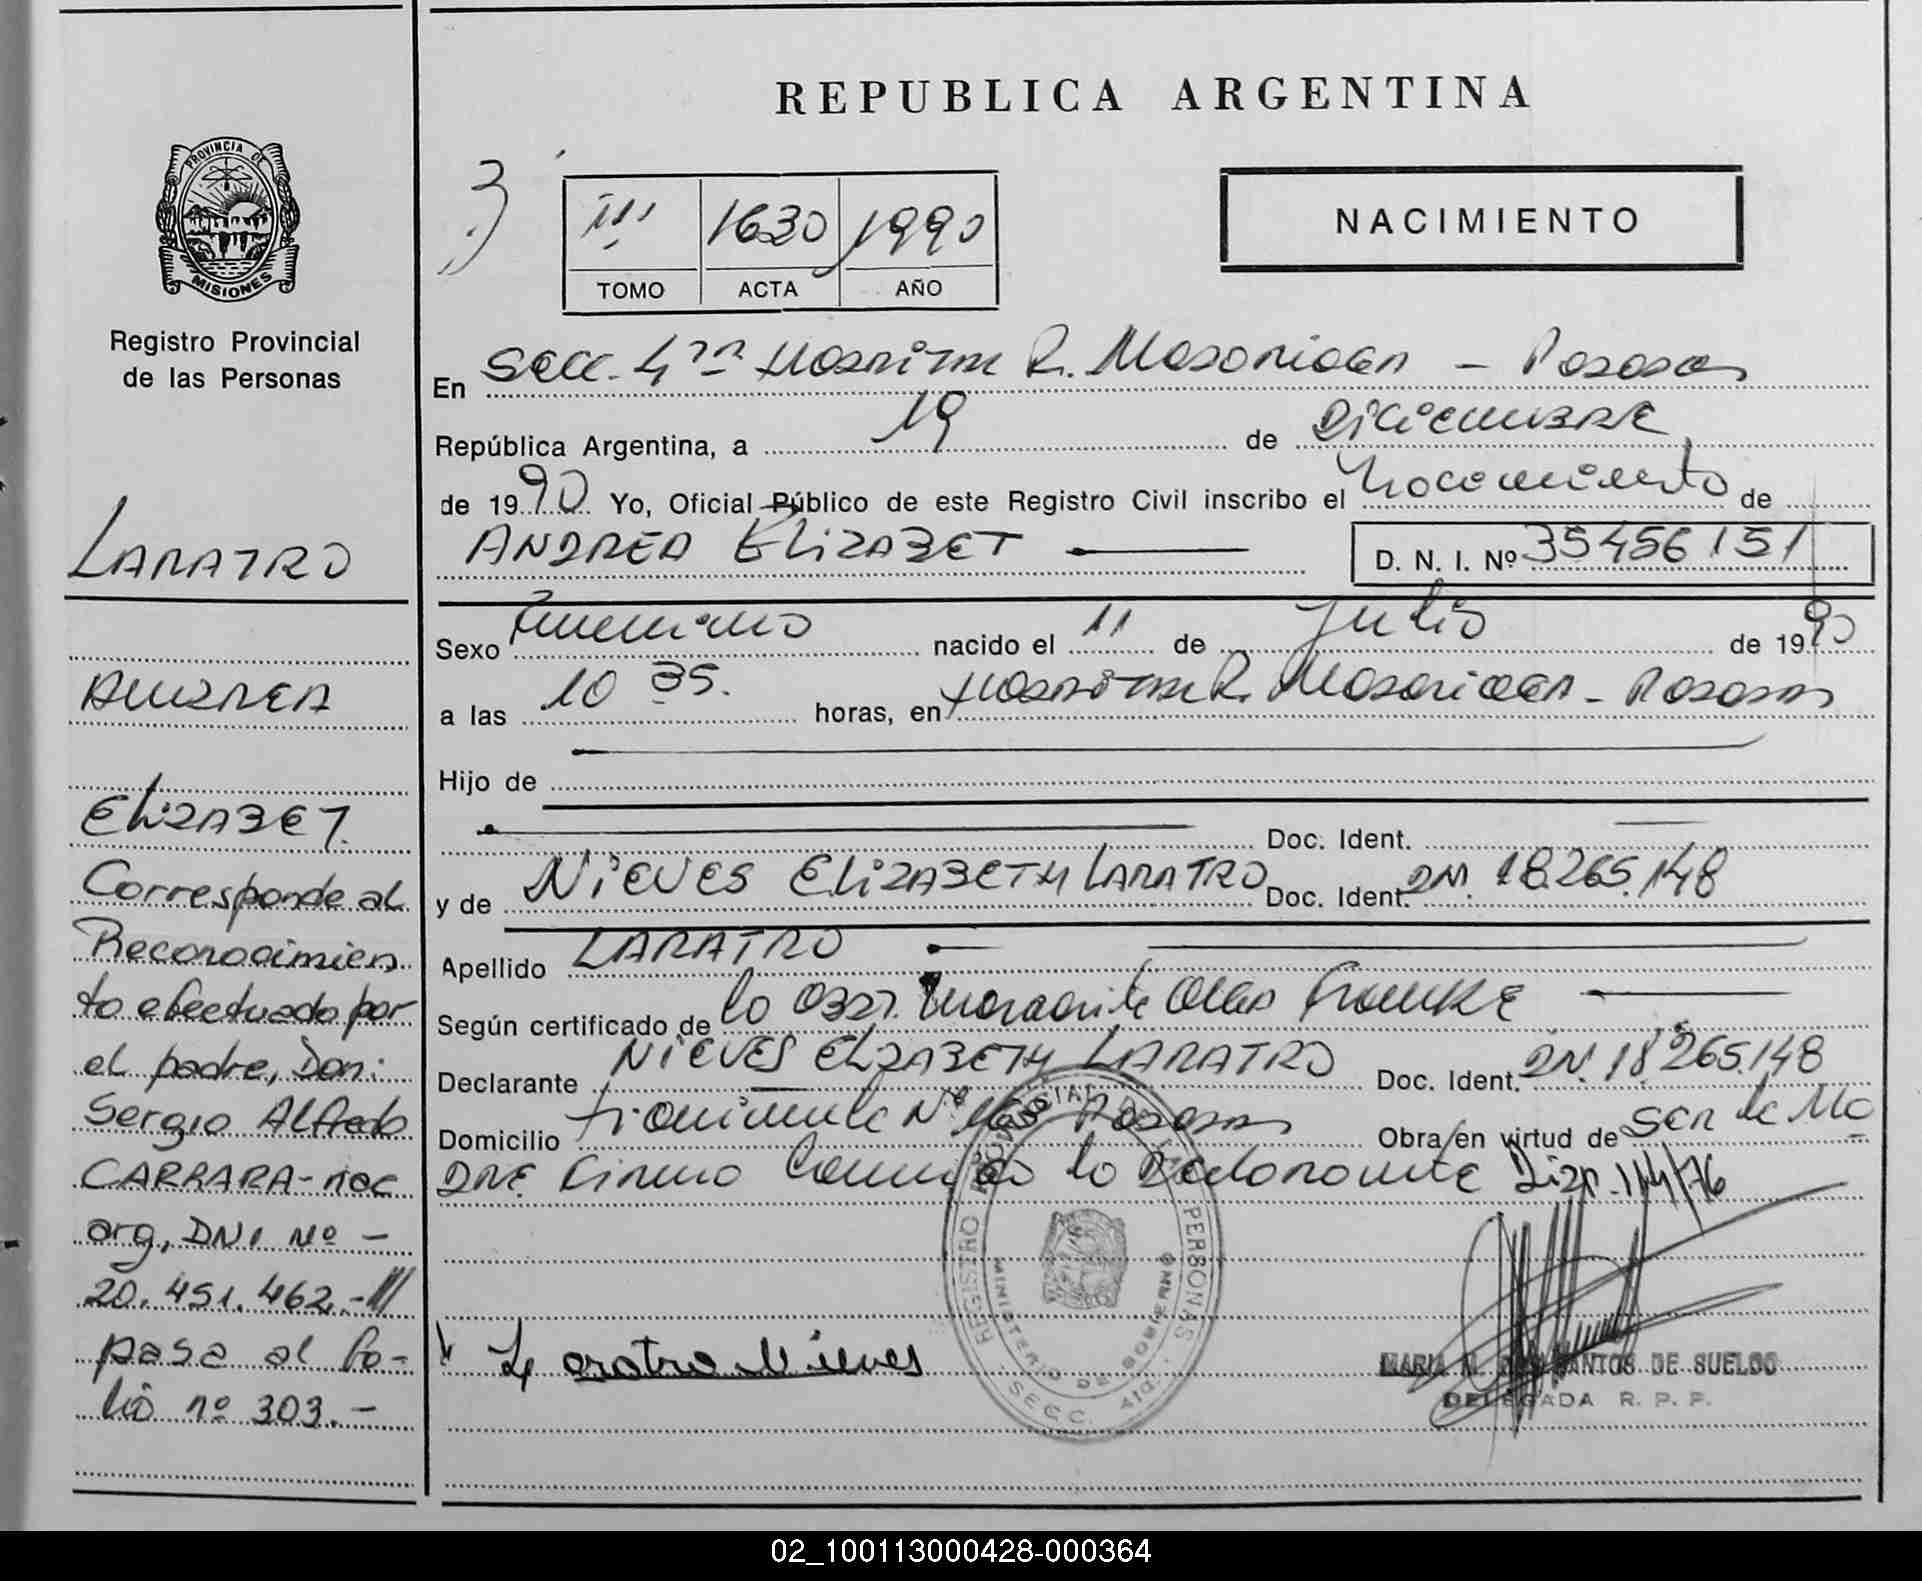 REPUBLICA ARGENTINA
NACIMIENTO
3)
III 1630 1990
TOMO ACTA AÑO
PROVINCIA DE
MISIONES
Registro Provincial
de las Personas
LARATRO
ANDREA
ELIZABET.
Corresponde al
Reconocimien
to efectuado por
el padre, Don:
Sergio Alfredo
CARRARA - nac
arg, DNI Nº -
20.451.462.-
pasa al fo-
lio nº 303.-
En Secc. 4ta Hospital R. Madariaga - Posadas
República Argentina, a 19 de Diciembre
de 1990 Yo, Oficial Público de este Registro Civil inscribo el nacimiento de
ANDREA ELIZABET D. N. I. Nº 35456151
Sexo Femenino nacido el 11 de Julio de 1990
a las 10 35. horas, en Hospital R. Madariaga - Posadas
Hijo de
Doc. Ident.
y de NIEVES ELIZABETH LARATRO Doc. Ident. DNI. 18.265.148
Apellido LARATRO
Según certificado de la Obst.
Declarante NIEVES ELIZABETH LARATRO Doc. Ident. DNI. 18.265.148
Domicilio Nº Posadas Obra en virtud de Ser la Ma
dre Firma la Declarante Disp. 114/76
Laratro Nieves
REGISTRO PROVINCIAL DE LAS PERSONAS
MINISTERIO DE GOBIERNO
SECC. 4ta.
MARIA DOS SANTOS DE SUELDO
DELEGADA R. P. P.
02_100113000428-000364